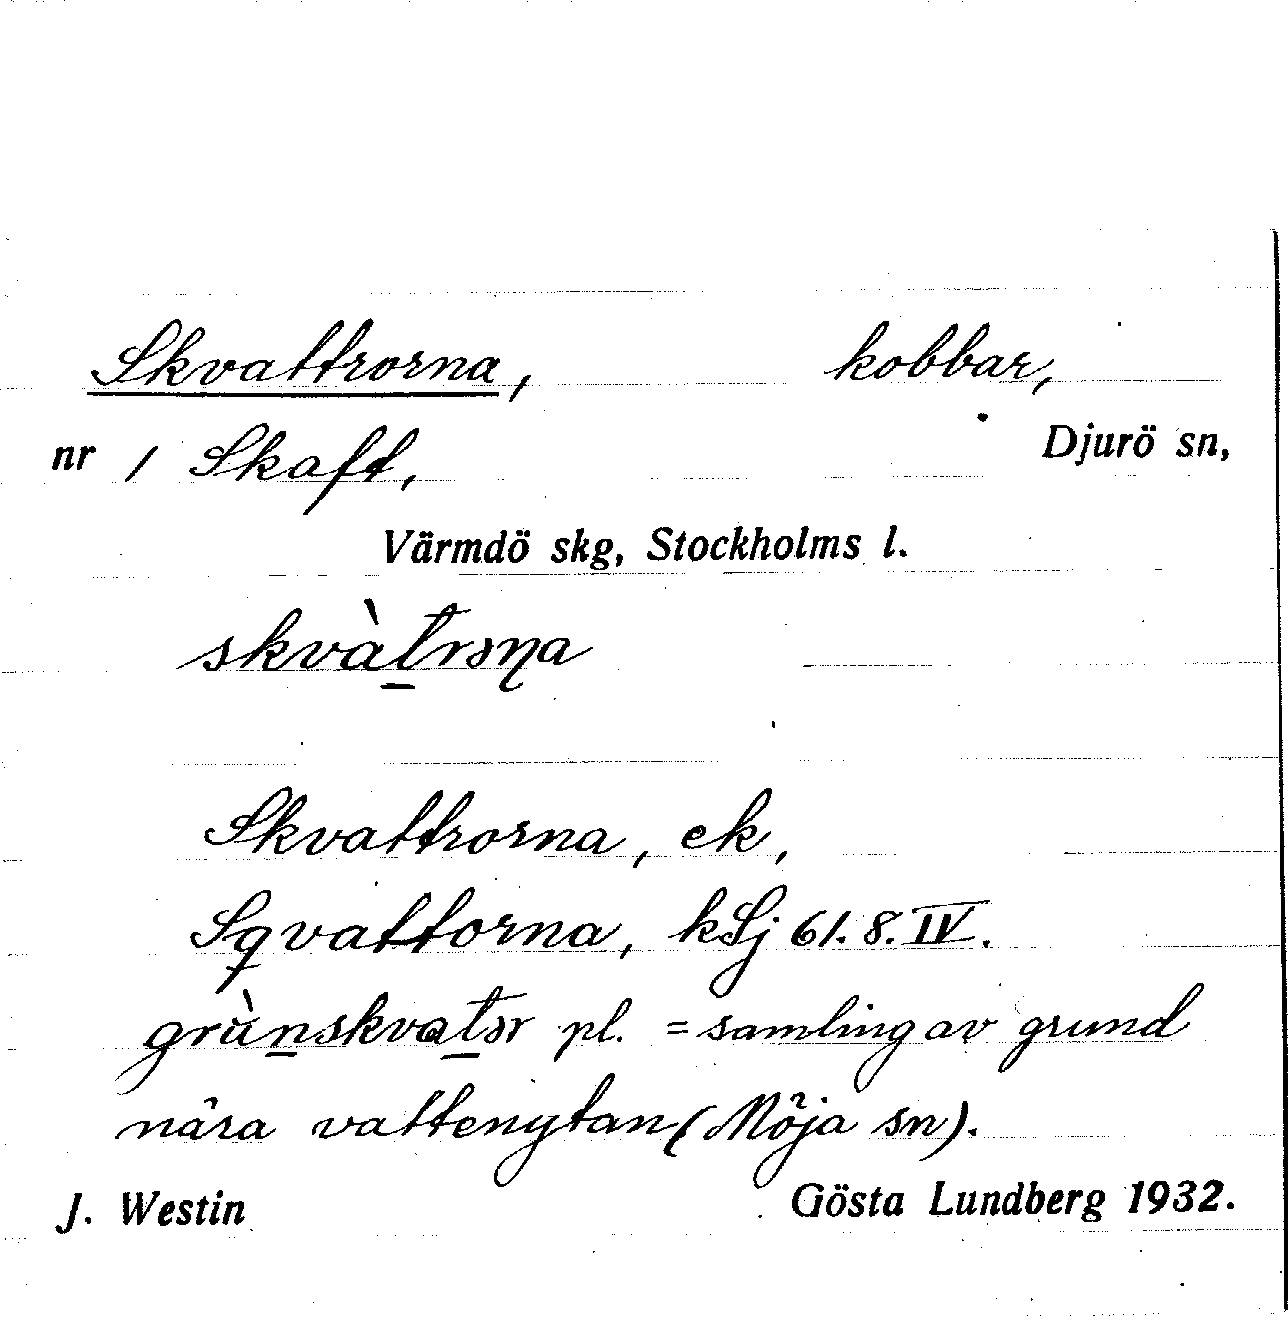 Skvattrorna, kobbar,
nr 1 Skaft, Djurö sn,
Värmdö skg, Stockholms l.
skvàt̲rəɳa
Skvattrorna, ek,
Sqvattorna, kSj 61. 8. IV.
grùn̲skvat̲ər pl. = samling av grund
nära vattenytan (Möja sn).
J. Westin Gösta Lundberg 1932.